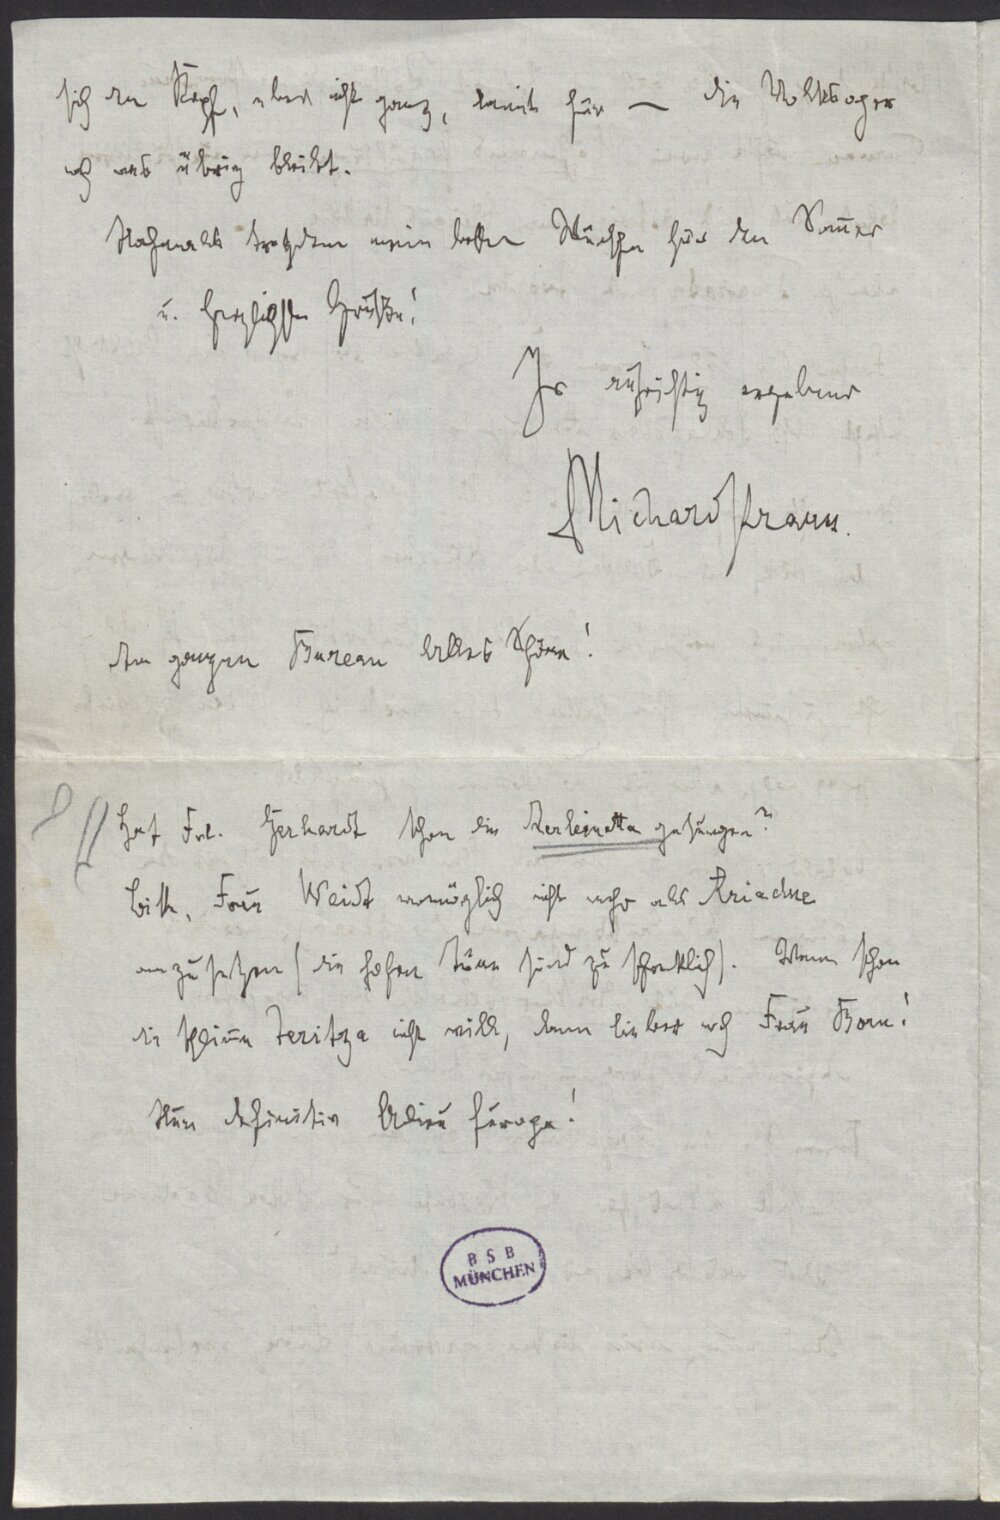 sich den Kopf, aber nicht ganz, damit für — die Volksoper
noch was übrig bleibt.
Nochmals trotzdem meine besten Wünsche für den Som̅er
u. herzlichsten Grüße!
Ihr aufrichtig ergebener
Richard Strauss.
Dem ganzen Bureau alles Schöne!
Hat Frl. Gerhardt schon die Zerbinetta gesungen?
Bitte, Frau Weidt womöglich nicht mehr als Ariadne
anzusetzen (die hohen Töne sind zu schrecklich). Wenn schon
die schlim̅e Jeritza nicht will, dann lieber noch Frau Born!
Nun definitiv Adieu Europa!
BSB
MÜNCHEN